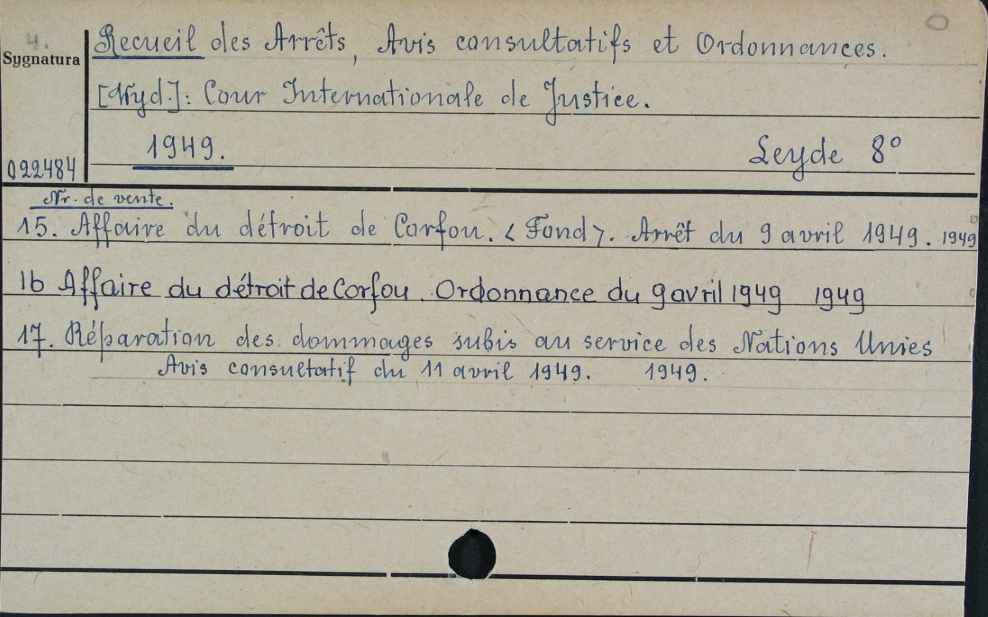 4.
Sygnatura
Recueil des Arrêts, Avis consultatifs et Ordonnances.
[Wyd.]: Cour Internationale de Justice.
1949. Leyde 8°
022484
Nr. de vente.
15. Affaire du détroit de Corfou. <Fond>. Arrêt du 9 avril 1949. 1949
16 Affaire du détroit de Corfou. Ordonnance du 9 avril 1949 1949
17. Réparation des dommages subis au service des Nations Unies
Avis consultatif du 11 avril 1949. 1949.